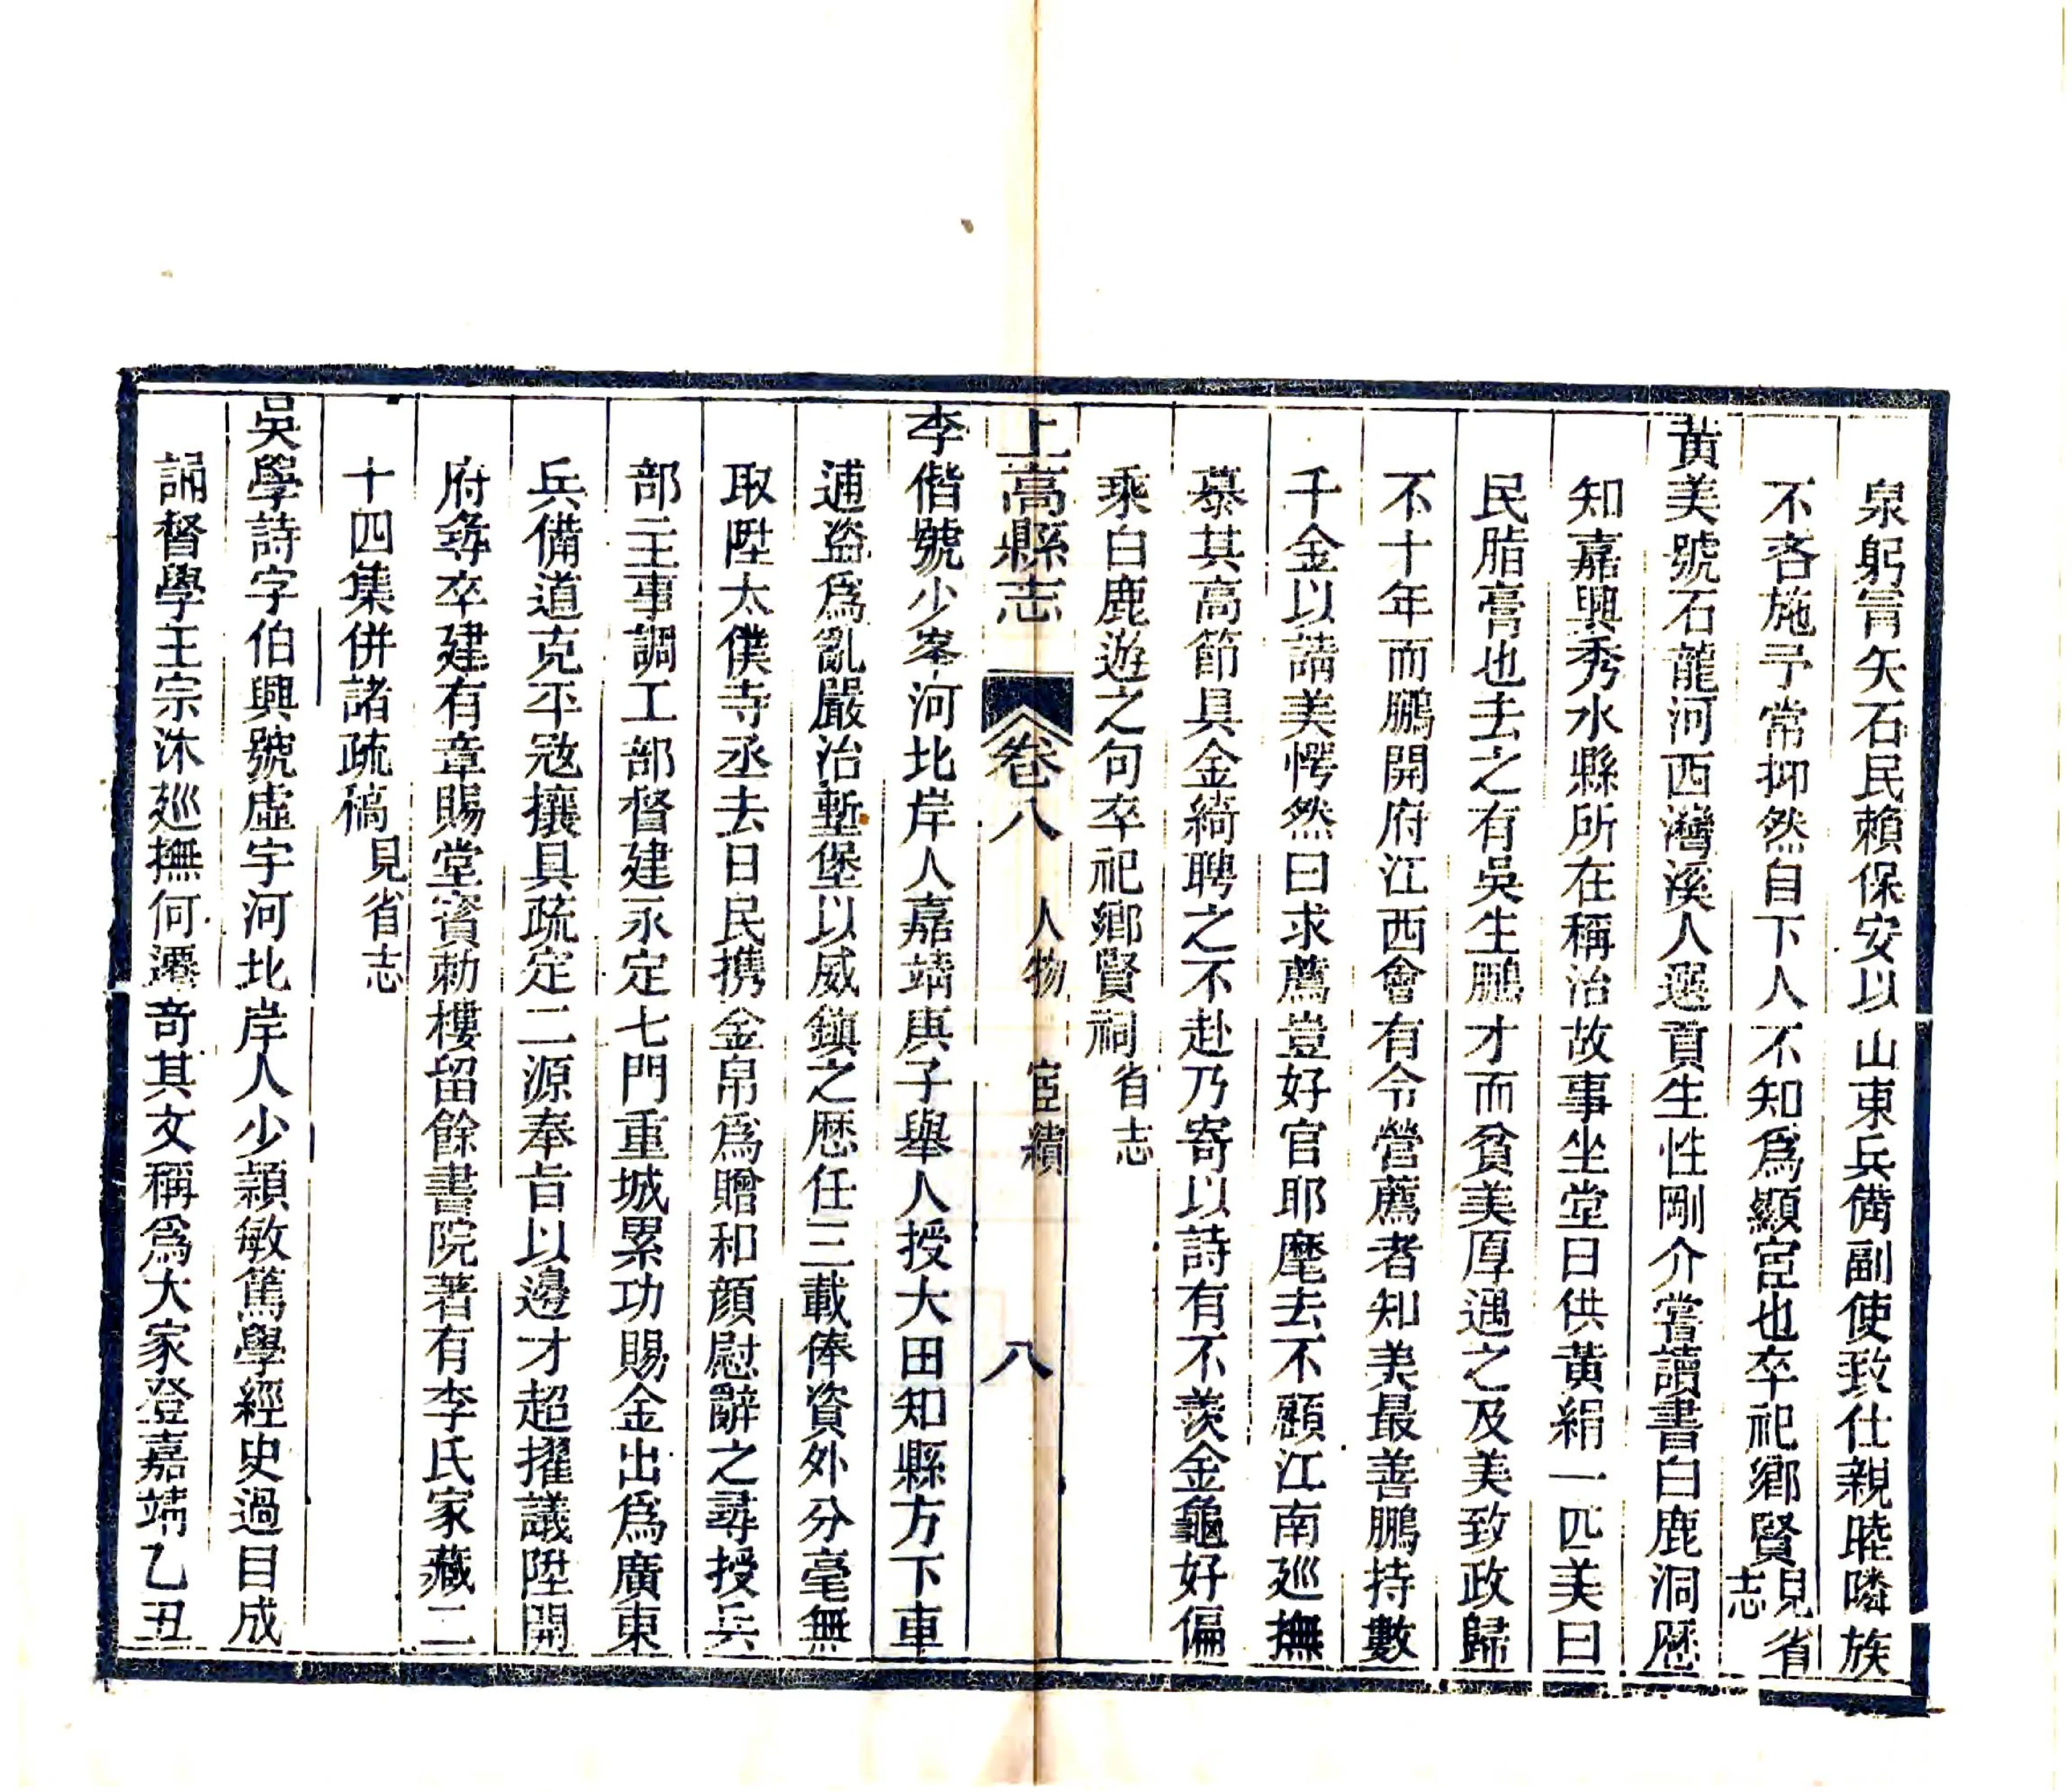 泉躬冐矢石民賴保安以山東兵備副使致仕親睦隣族
不吝施予常抑然自下人不知爲顯宦也卒祀鄉賢見省志
黃美號石龍河西灣溪人選貢生性剛介嘗讀書白鹿洞歷
知嘉興秀水縣所在稱治故事坐堂日供黃絹一匹美曰
民脂膏也去之有吳生鵬才而貧美厚遇之及美致政歸
不十年而鵬開府江西會有令營薦者知美最善鵬持數
千金以請美愕然曰求薦豈好官耶麾去不顧江南巡撫
慕其高節具金綺聘之不赴乃寄以詩有不羨金龜好偏
乘白鹿遊之句卒祀鄉賢祠省志
上高縣志 卷八 人物 宦績 八
李偕號少峯河北岸人嘉靖庚子舉人授大田知縣方下車
逋盜爲亂嚴治塹堡以威鎮之歷任三載俸資外分毫無
取陞太僕寺丞去日民携金帛爲贈和顏慰辭之尋授兵
部主事調工部督建永定七門重城累功賜金出爲廣東
兵備道克平冦攘具疏定二源奉旨以邊才超擢議陞開
府尋卒建有章賜堂賓勅樓留餘書院著有李氏家藏二
十四集併諸疏稿見省志
吳學詩字伯興號虛宇河北岸人少穎敏篤學經史過目成
誦督學王宗沐巡撫何遷奇其文稱爲大家登嘉靖乙丑